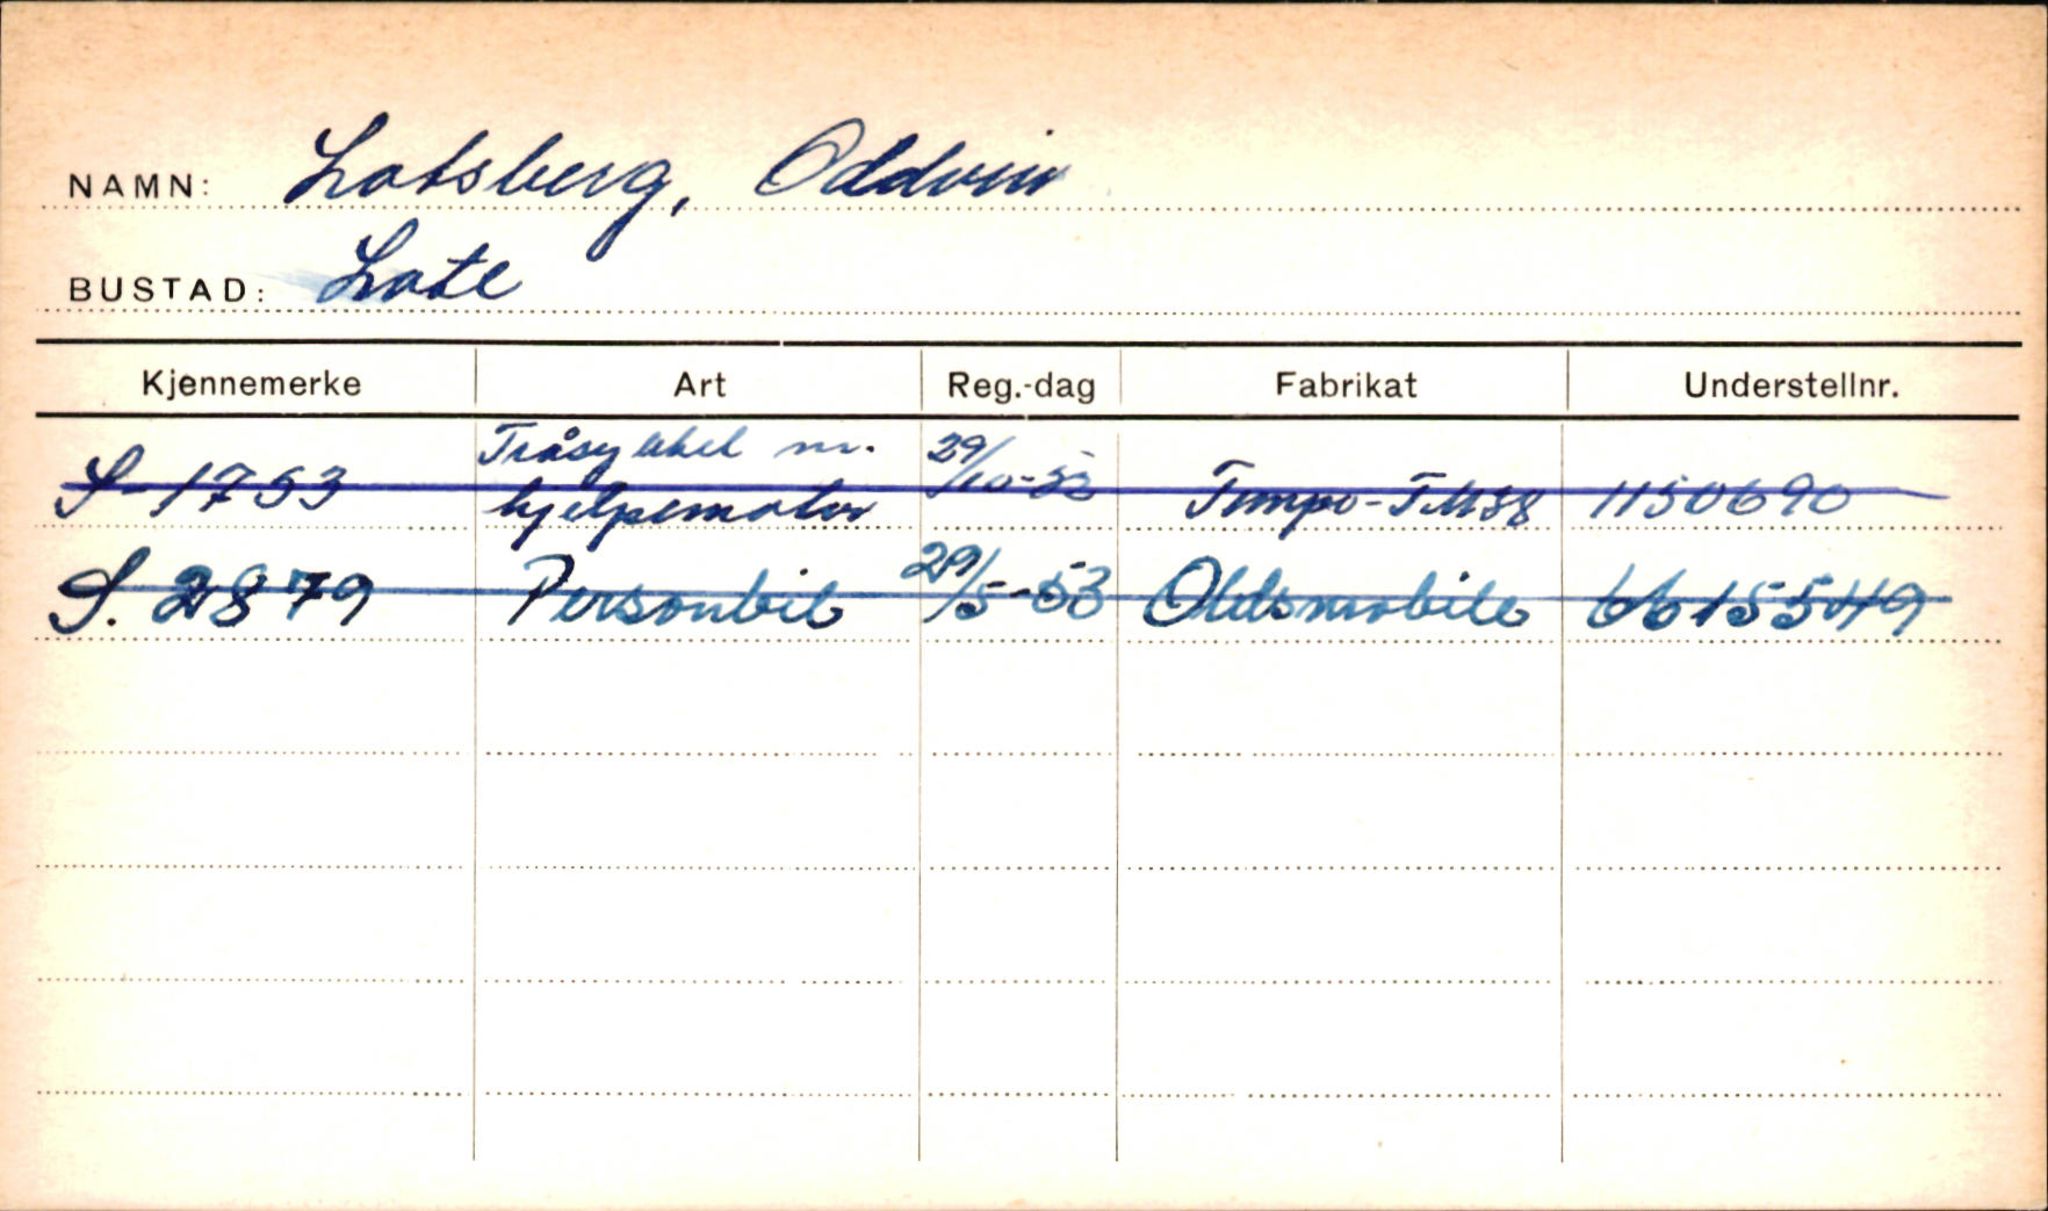 NAMN: Lotsberg, Oddvin
BUSTAD: Lote
Kjennemerke Art Reg.-dag Fabrikat Understellnr.
S-1753 Tråsykkel m. hjelpemotor 29/10-52 Tempo-TM38 1150690
S. 2879 Personbil 29/5-53 Oldsmobile